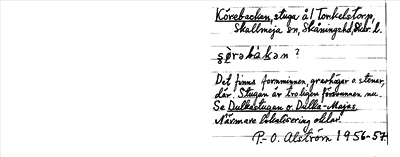 Körebacken, stuga å l Torkelstorp,
Skallmeja sn, Skåningshd, Skbr. l.
ʂörəbàkən ?
Det finns fornminnen, gravhögar o. stenar,
där. Stugan är troligen försvunnen nu.
Se Dulkastugan o. Dulka-Majas.
Närmare lokalisering oklar.
P.-O. Alström 1956-57.